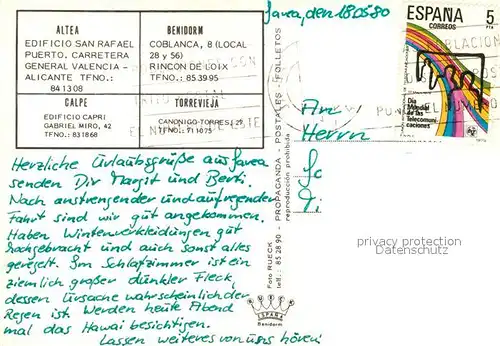 Javea, den 18.05.80
ALTEA
EDIFICIO SAN RAFAEL
PUERTO. CARRETERA
GENERAL VALENCIA -
ALICANTE TFNO.:
841308
BENIDORM
COBLANCA, 8 (LOCAL
28 y 56)
RINCON DE LOIX
TFNO.: 853995
CALPE
EDIFICIO CAPRI
GABRIEL MIRO, 42
TFNO.: 831868
TORREVIEJA
CANONIGO TORRES, 
TFNO.: 711075
ESPAÑA
CORREOS
5
PTA
Dia
Mundial
de las
Telecomuni-
caciones
An
Herrn
Herzliche Urlaubsgrüße aus Javea
senden Dir Margit und Berti.
Nach anstrengender und aufregender
Fahrt sind wir gut angekommen.
Haben Winterverkleidungen gut
hochgebracht und auch sonst alles
geregelt. Im Schlafzimmer ist ein
ziemlich großer dunkler Fleck,
dessen Ursache wahrscheinlich der
Regen ist. Werden heute Abend
mal das Hawai besichtigen.
Lassen weiteres von uns hören!
Foto RUECK - PROPAGANDA - POSTALES - FOLLETOS
telf.: 85 28 90 - reproducción prohibida
SPAR
Benidorm
privacy protection
Datenschutz